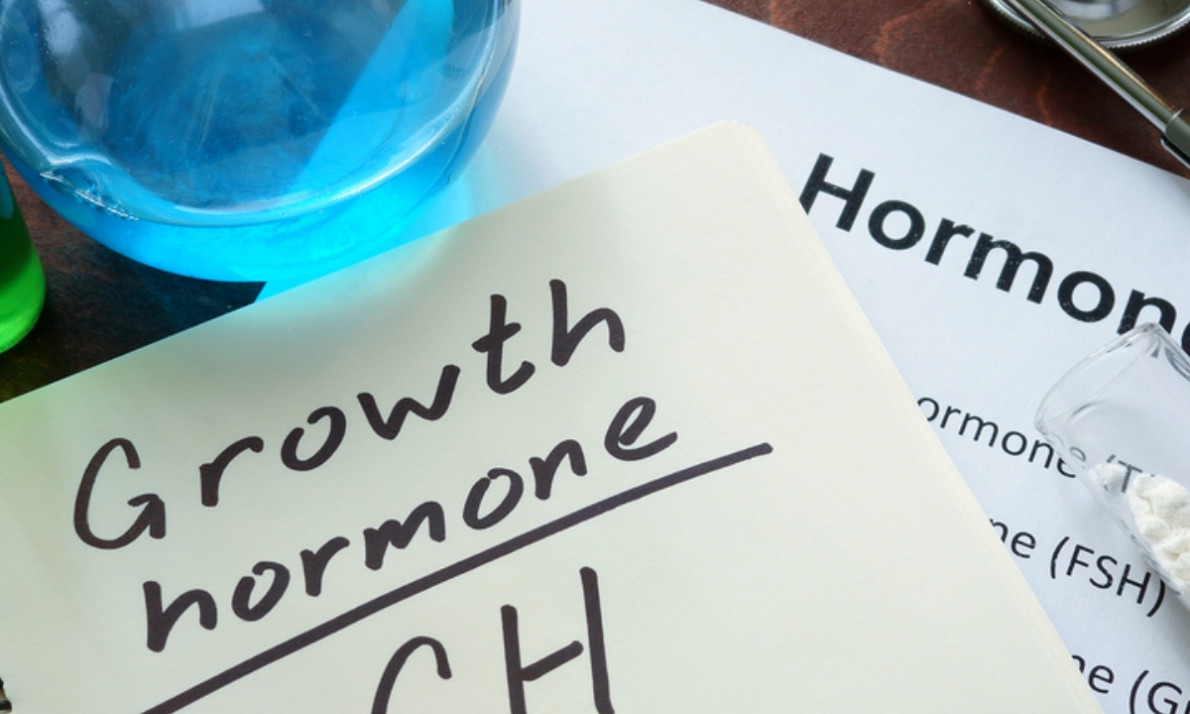 Growth
hormone
GH
Hormone
ormone (T
ne (FSH)
ne (G